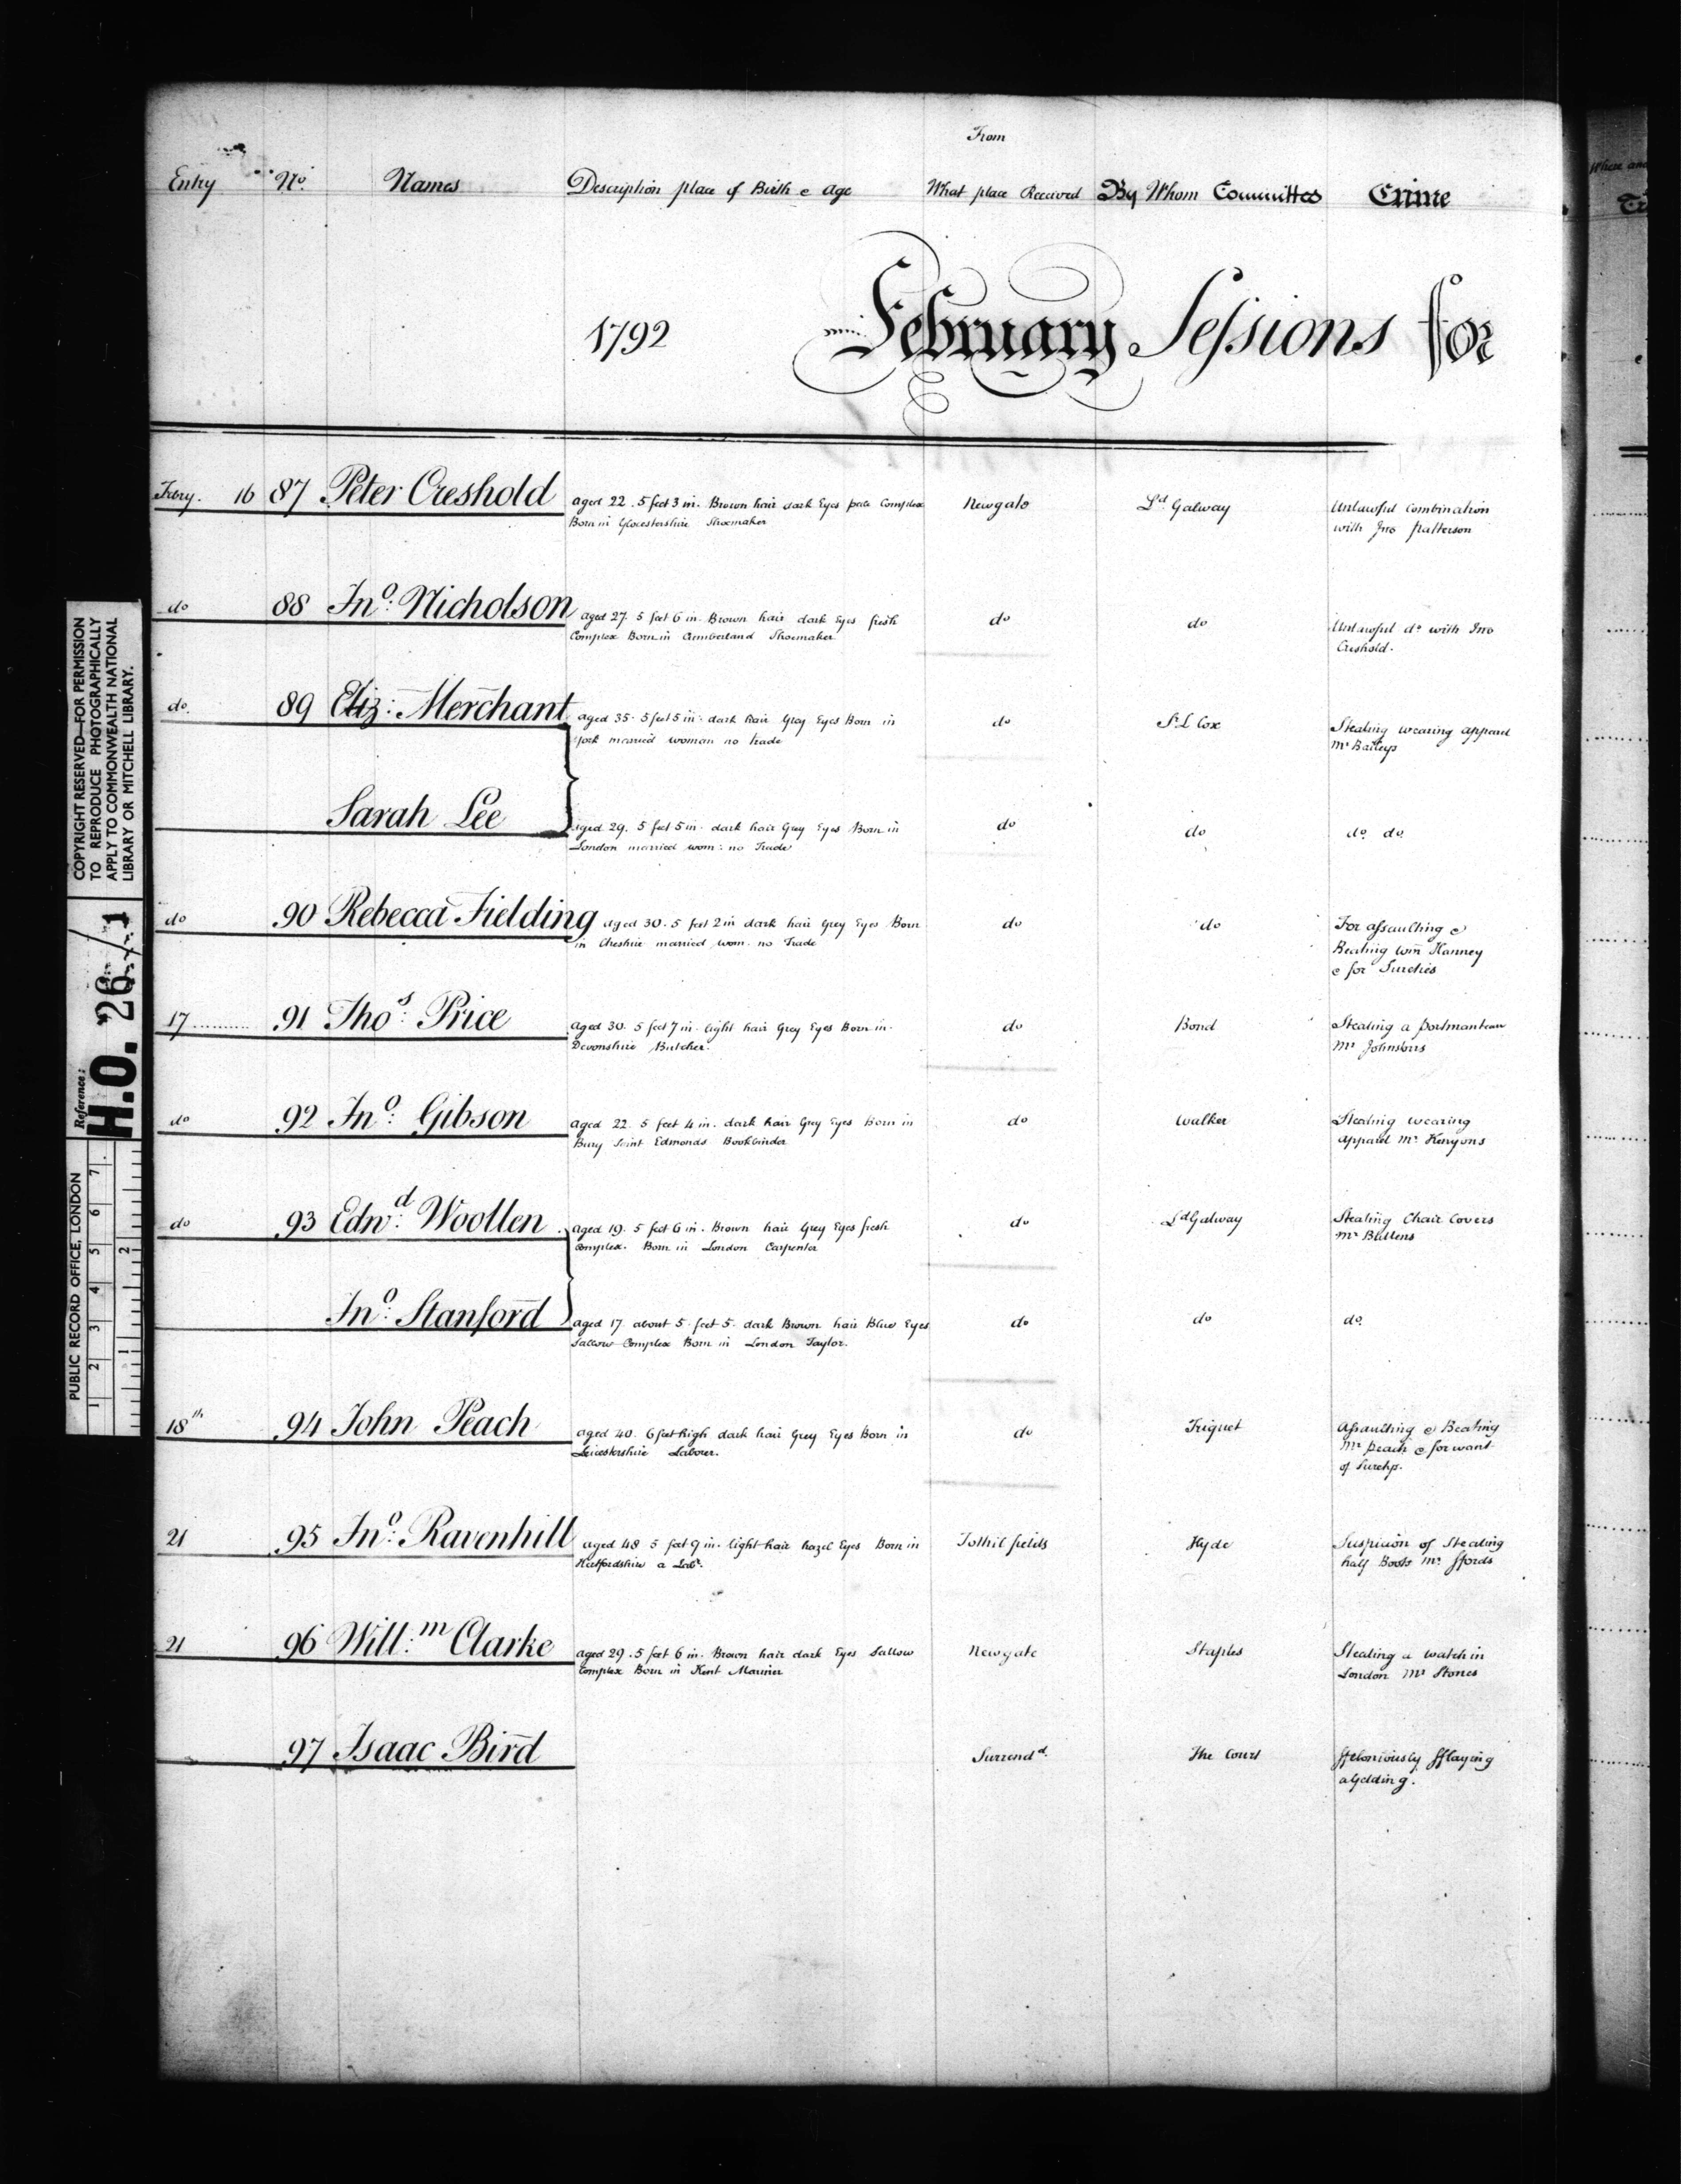 From
Entry No. Names Description place of Birth & Age What place Received By Whom Committed Crime
1792 February Sessions for
Febry. 16 87 Peter Creshold aged 22. 5 feet 3 in. Brown hair dark Eyes pale Complex Newgate Ld. Galway Unlawful Combination
Born in Glocestershire Shoemaker with Jno Patterson
do 88 Jno. Nicholson aged 27. 5 feet 6 in. Brown hair dark Eyes fresh do do Unlawful do with Jno
Complex Born in Cumberland Shoemaker Creshold.
do. 89 Eliz: Merchant aged 35. 5 feet 5 in. dark hair Grey Eyes Born in do Sr. L Cox Stealing wearing apparel
York married woman no trade Mr Baileys
Sarah Lee aged 29. 5 feet 5 in. dark hair Grey Eyes Born in do do do. do.
London married wom: no Trade
do 90 Rebecca Fielding aged 30. 5 feet 2 in dark hair Grey Eyes Born do do For assaulting &
in Cheshire married wom. no Trade Beating Wm Hanney
& for Sureties
17 91 Thos. Price aged 30. 5 feet 7 in. light hair Grey Eyes Born in do Bond Stealing a portmanteau
Devonshire Butcher. Mr Johnsons
do 92 Jno. Gibson aged 22. 5 feet 4 in. dark hair Grey Eyes Born in do Walker Stealing wearing
Bury Saint Edmonds Bookbinder apparel Mr. Kenyons
do 93 Edwd. Woollen aged 19. 5 feet 6 in. Brown hair Grey Eyes fresh do Ld Galway Stealing Chair Covers
Complex. Born in London Carpenter Mr
Jno. Stanford aged 17 about 5 feet 5. dark Brown hair Blue Eyes do do do.
Sallow Complex Born in London Taylor.
18th 94 John Peach aged 40. 6 feet high dark hair Grey Eyes Born in do Triquet Assaulting & Beating
Leicestershire Laborer. Mr Peach & for want
of Suretys.
21 95 Jno. Ravenhill aged 48 5 feet 9 in. light hair hazel Eyes Born in Tothil fields Hyde Suspicion of Stealing
Hertfordshire a Labr. half Boots Mr. ffords
21 96 Will.m Clarke aged 29. 5 feet 6 in. Brown hair dark Eyes Sallow Newgate Staples Stealing a watch in
Complex Born in Kent Mariner London Mr Stones
97 Isaac Bird Surrendd. The Court ffeloniously fflaying
a Gelding.
COPYRIGHT RESERVED—FOR PERMISSION
TO REPRODUCE PHOTOGRAPHICALLY
APPLY TO COMMONWEALTH NATIONAL
LIBRARY OR MITCHELL LIBRARY.
Reference:
H.O. 26/1
PUBLIC RECORD OFFICE, LONDON
1 2 3 4 5 6 7
1 2
Where and